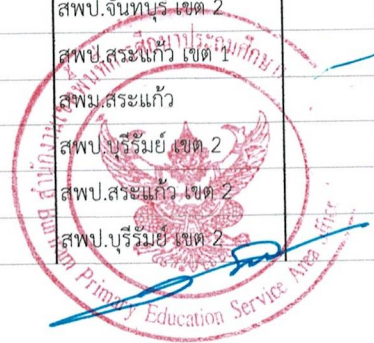 สพป.จันทบุรี เขต 2
สพป.สระแก้ว เขต 1
สพม.สระแก้ว
สพป.บุรีรัมย์ เขต 2
สพป.สระแก้ว เขต 2
สพป.บุรีรัมย์ เขต 2
Primary Education Service Area Office